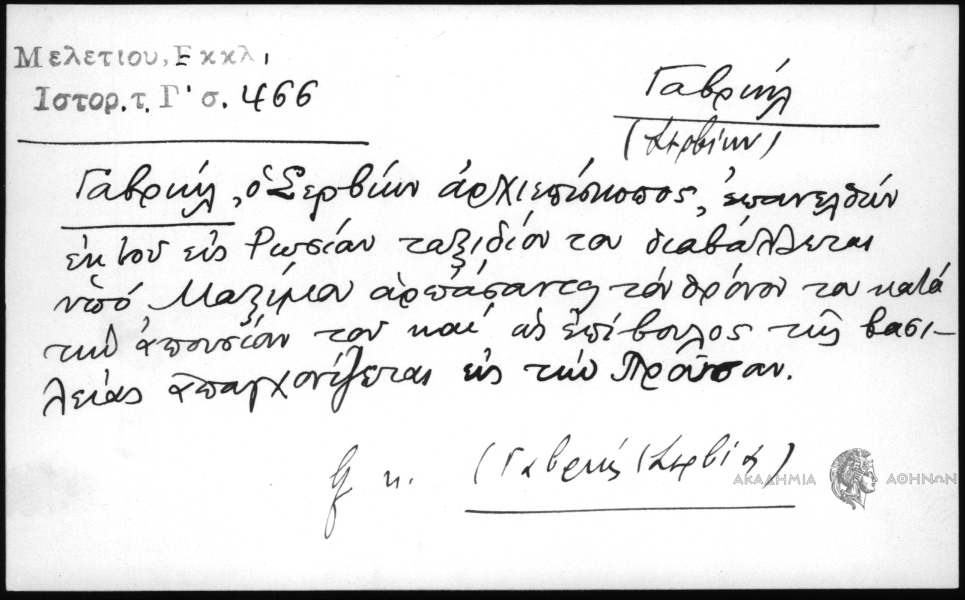 Μελετιου, Εκκλ.
Ιστορ. τ. Γ' σ. 466
Γαβριήλ
(Σερβίων)
Γαβριήλ, ὁ Σερβίων ἀρχιεπίσκοπος, ἐπανελθών
ἐκ του εἰς Ρωσίαν ταξιδίου του διαβάλλεται
ὑπό Μαξίμου ἁρπάσαντος τόν θρόνον του κατά
τήν ἀπουσίαν του καί ὡς ἐπίβουλος τῆς βασι-
λείας ἀπαγχονίζεται εἰς τήν Προῦσαν.
κ. (Γαβριήλ Σερβία)
ΑΚΑΔΗΜΙΑ ΑΘΗΝΩΝ